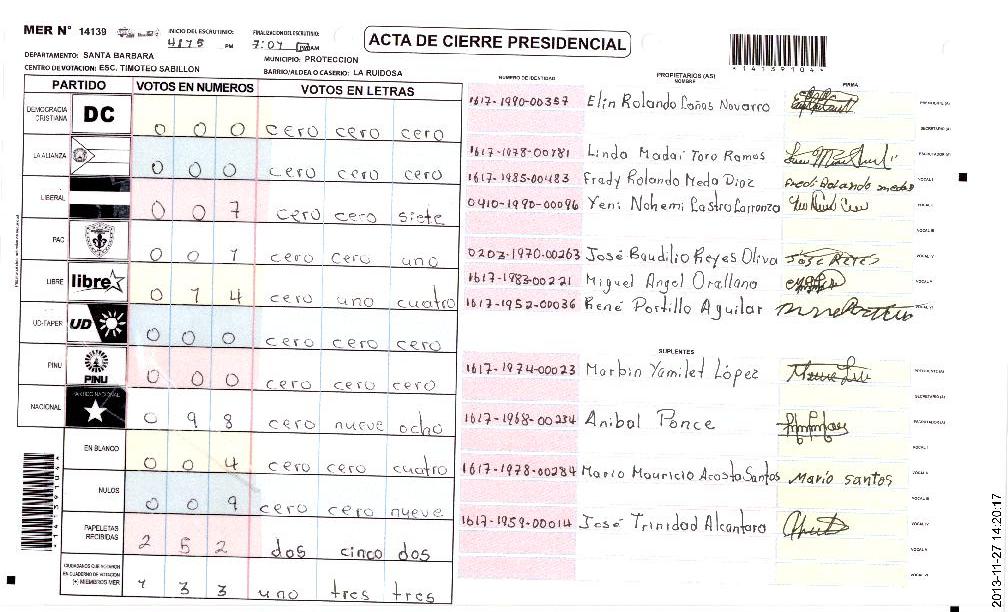 MER N° 14139
INICIO DEL ESCRUTINIO: 4:15 PM
FINALIZACION DEL ESCRUTINIO: 7:07 PM AM
ACTA DE CIERRE PRESIDENCIAL
*14139104*
DEPARTAMENTO: SANTA BARBARA
MUNICIPIO: PROTECCION
CENTRO DE VOTACION: ESC. TIMOTEO SABILLON
BARRIO/ALDEA O CASERIO: LA RUIDOSA
PARTIDO VOTOS EN NUMEROS VOTOS EN LETRAS
DEMOCRACIA CRISTIANA DC 0 0 0 cero cero cero
LA ALIANZA 0 0 0 cero cero cero
LIBERAL 0 0 7 cero cero siete
PAC 0 0 1 cero cero uno
LIBRE libre 0 1 4 cero uno cuatro
UD-FAPER UD 0 0 0 cero cero cero
PINU PINU 0 0 0 cero cero cero
NACIONAL PARTIDO NACIONAL 0 9 8 cero nueve ocho
EN BLANCO 0 0 4 cero cero cuatro
NULOS 0 0 9 cero cero nueve
PAPELETAS RECIBIDAS 2 5 2 dos cinco dos
CIUDADANOS QUE VOTARON EN CUADERNO DE VOTACION (+) MIEMBROS MER 1 3 3 uno tres tres
NUMERO DE IDENTIDAD PROPIETARIOS (AS) NOMBRE FIRMA
1617-1990-00357 Elin Rolando Cañas Navarro PRESIDENTE (A)
SECRETARIO (A)
1617-1978-00781 Linda Madai Toro Ramos ESCRUTADOR (A)
1617-1985-00483 Fredy Rolando Meda Diaz VOCAL I
0410-1990-00096 Yeni Nohemi Castro Carranza VOCAL II
VOCAL III
0203-1970-00263 José Baudilio Reyes Oliva JOSE REYES VOCAL IV
1617-1983-00221 Miguel Angel Orallano VOCAL V
1617-1952-00036 René Portillo Aguilar VOCAL VI
SUPLENTES
1617-1974-00023 Marbin Yamilet López PRESIDENTE (A)
SECRETARIO (A)
1617-1968-00234 Anibal Ponce ESCRUTADOR (A)
VOCAL I
1617-1978-00284 Mario Mauricio Acosta Santos Mario santos VOCAL II
VOCAL III
1617-1959-00014 José Trinidad Alcantara VOCAL IV
VOCAL V
VOCAL VI
2013-11-27 14:20:17